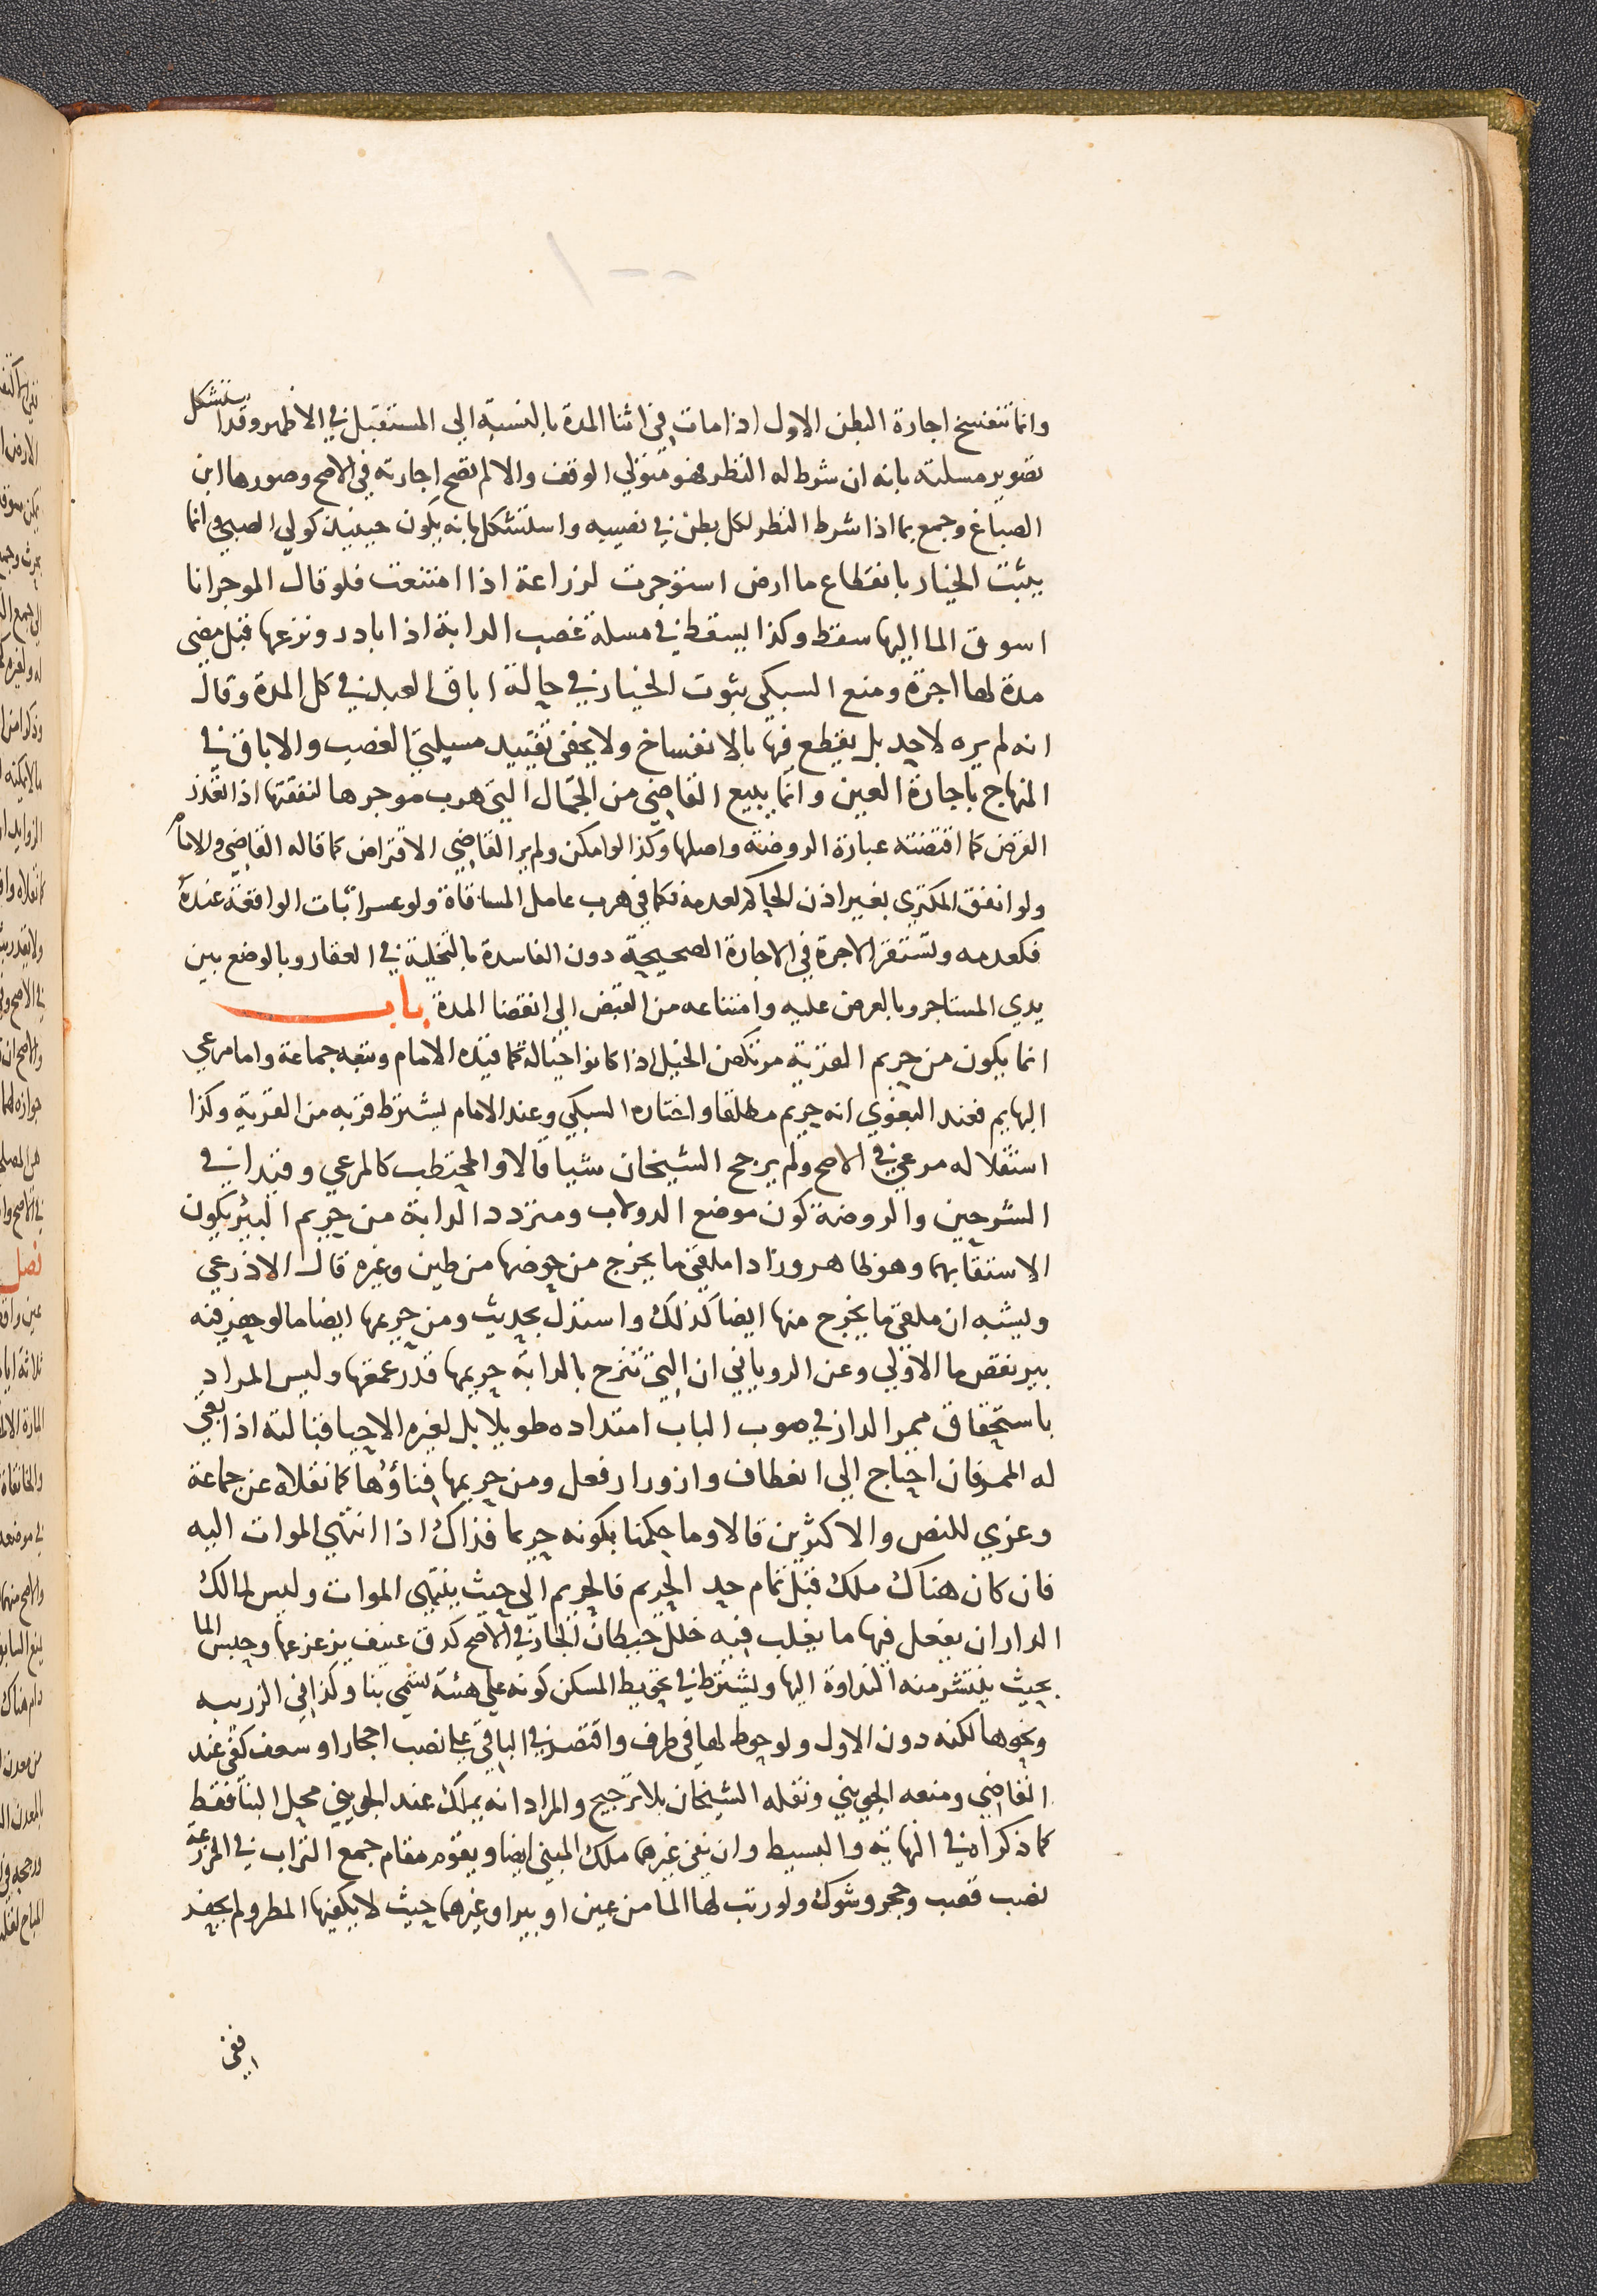 وانما تنفسخ اجارة البطن الاول اذا مات في اثنا المدة بالنسبة الى المستقبل في الاظهر وقد استشكل
تصوير مسلته بانه ان شرط له النظر فهو متولي الوقف والا لم تصح اجارته في الاصح وصورها ابن
الصباغ وجمع بما اذا شرط النظر لكل بطن في نصيبه واستشكل بانه يكون حينيذ كولي الصبي وانما
يثبت الخيار بانقطاع ما ارض استوجرت لزراعة اذا امتنعت فلو قال الموجر انا
اسوق الما اليها سقط وكذا يسقط في مسلة غصب الدابة اذا بادر ونزعها قبل مضي
مدة لها اجرة ومنع السبكي ثبوت الخيار في حالة اباق العبد في كل المدة وقال
انه لم يره لاحد بل يقطع فيها بالانفساخ ولا يخفى تقييد مسيلتي الغصب والاباق في
المنهاج باجارة العين وانما يبيع القاضي من الجمال التي هرب موجرها لنفقتها اذا تعذر
القرض كما اقتضته عبارة الروضة واصلها وكذا لو امكن ولم ير القاضي الاقتراض كما قاله القاضي والامام
ولو انفق المكتري بغير اذن الحاكم لعدمه فكما في هرب عامل المساقاة ولو عسر اثبات الواقعة عنده
فكعدمه وتستقر الاجرة في الاجارة الصحيحة دون الفاسدة بالتخلية في العقار وبالوضع بين
يدي المستاجر وبالعرض عليه وامتناعه من القبض الى انقضا المدة باب
انما يكون من حريم القرية مرتكض الخيل اذا كانوا خيالة كما قيده الامام وتبعه جماعة واما مرعي
البهايم فعند البغوي انه حريم مطلقا واختاره السبكي وعند الامام يشترط قربه من القرية وكذا
استقلاله مرعى في الاصح ولم يرجح الشيخان شيا قالا والمحتطب كالمرعي وقيدا في
الشرحين والروضة كون موضع الدولاب ومتردد الدابة من حريم البير بكون
الاستقا بهما وهو ظاهر وزادا ملقى ما يخرج من حوضها من طين وغيره قال الاذرعي
ويشبه ان ملقى ما يخرج منها ايضا كذلك واستدل بحديث ومن حريمها ايضا ما لو حفر فيه
بير نقص ما الاولي وعن الروياني ان التي تنزح بالدابة حريمها قدر عمقها وليس المراد
باستحقاق ممر الدار في صوب الباب امتداده طويلا بل لغيره الاحيا قبالته اذا بقي
له الممر فان احتاج الى انعطاف وازورار فعل ومن حريمها فناؤها كما نقلاه عن جماعة
وعزي للنص والاكثرين قالا وما حكمنا بكونه حريما فذاك اذا انتهى الموات اليه
فان كان هناك ملك قبل تمام حد الحريم فالحريم الى حيث ينتهي الموات وليس لمالك
الدار ان يفعل فيها ما يغلب فيه خلل حيطان الجار في الاصح كدق عنيف يزعزعها وحبس الما
بحيث ينتشر منه النداوة اليها ويشترط في تحويط المسكن كونه على هئة تسمى بنا وكذا في الزريبه
ونحوها لكنه دون الاول ولو حوط لها في طرف واقتصر في الباقي على نصب احجار او سعف كفى عند
القاضي ومنعه الجويني ونقله الشيخان بلا ترجيح والمراد انه يملك عند الجويني محل البنا فقط
كما ذكراه في النهاية والبسيط وان نفى غيرهما ملك المبني ايضا ويقوم مقام جمع التراب في المزرعة
نصب قصب وحجر وشوك ولو رتب لها الما من عين او بير او غيرهما حيث لا يكفيها المطر ولم يحفر